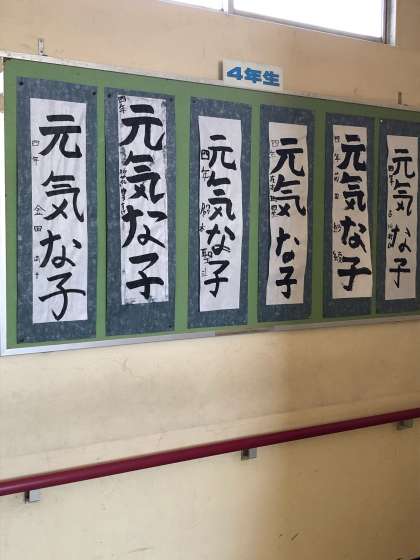 4年生
元気な子
四年
元気な子
四年
元気な子
四年
元気な子
四年
元気な子
四年
元気な子
四年
金田